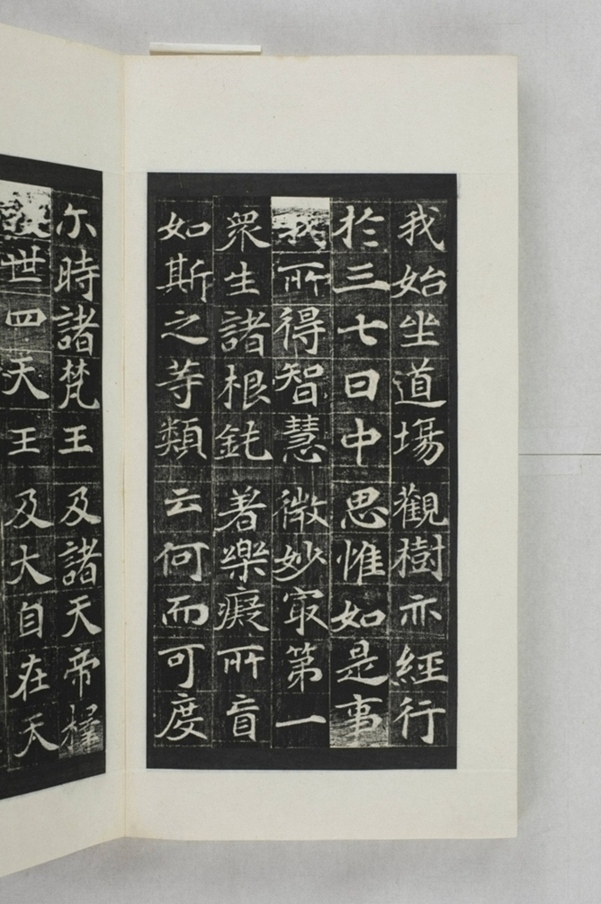 我始坐道場觀樹亦經行
於三七日中思惟如是事
我所得智慧微妙㝡第一
衆生諸根鈍著樂癡所盲
如斯之等類云何而可度
尒時諸梵王及諸天帝釋
護世四天王及大自在天